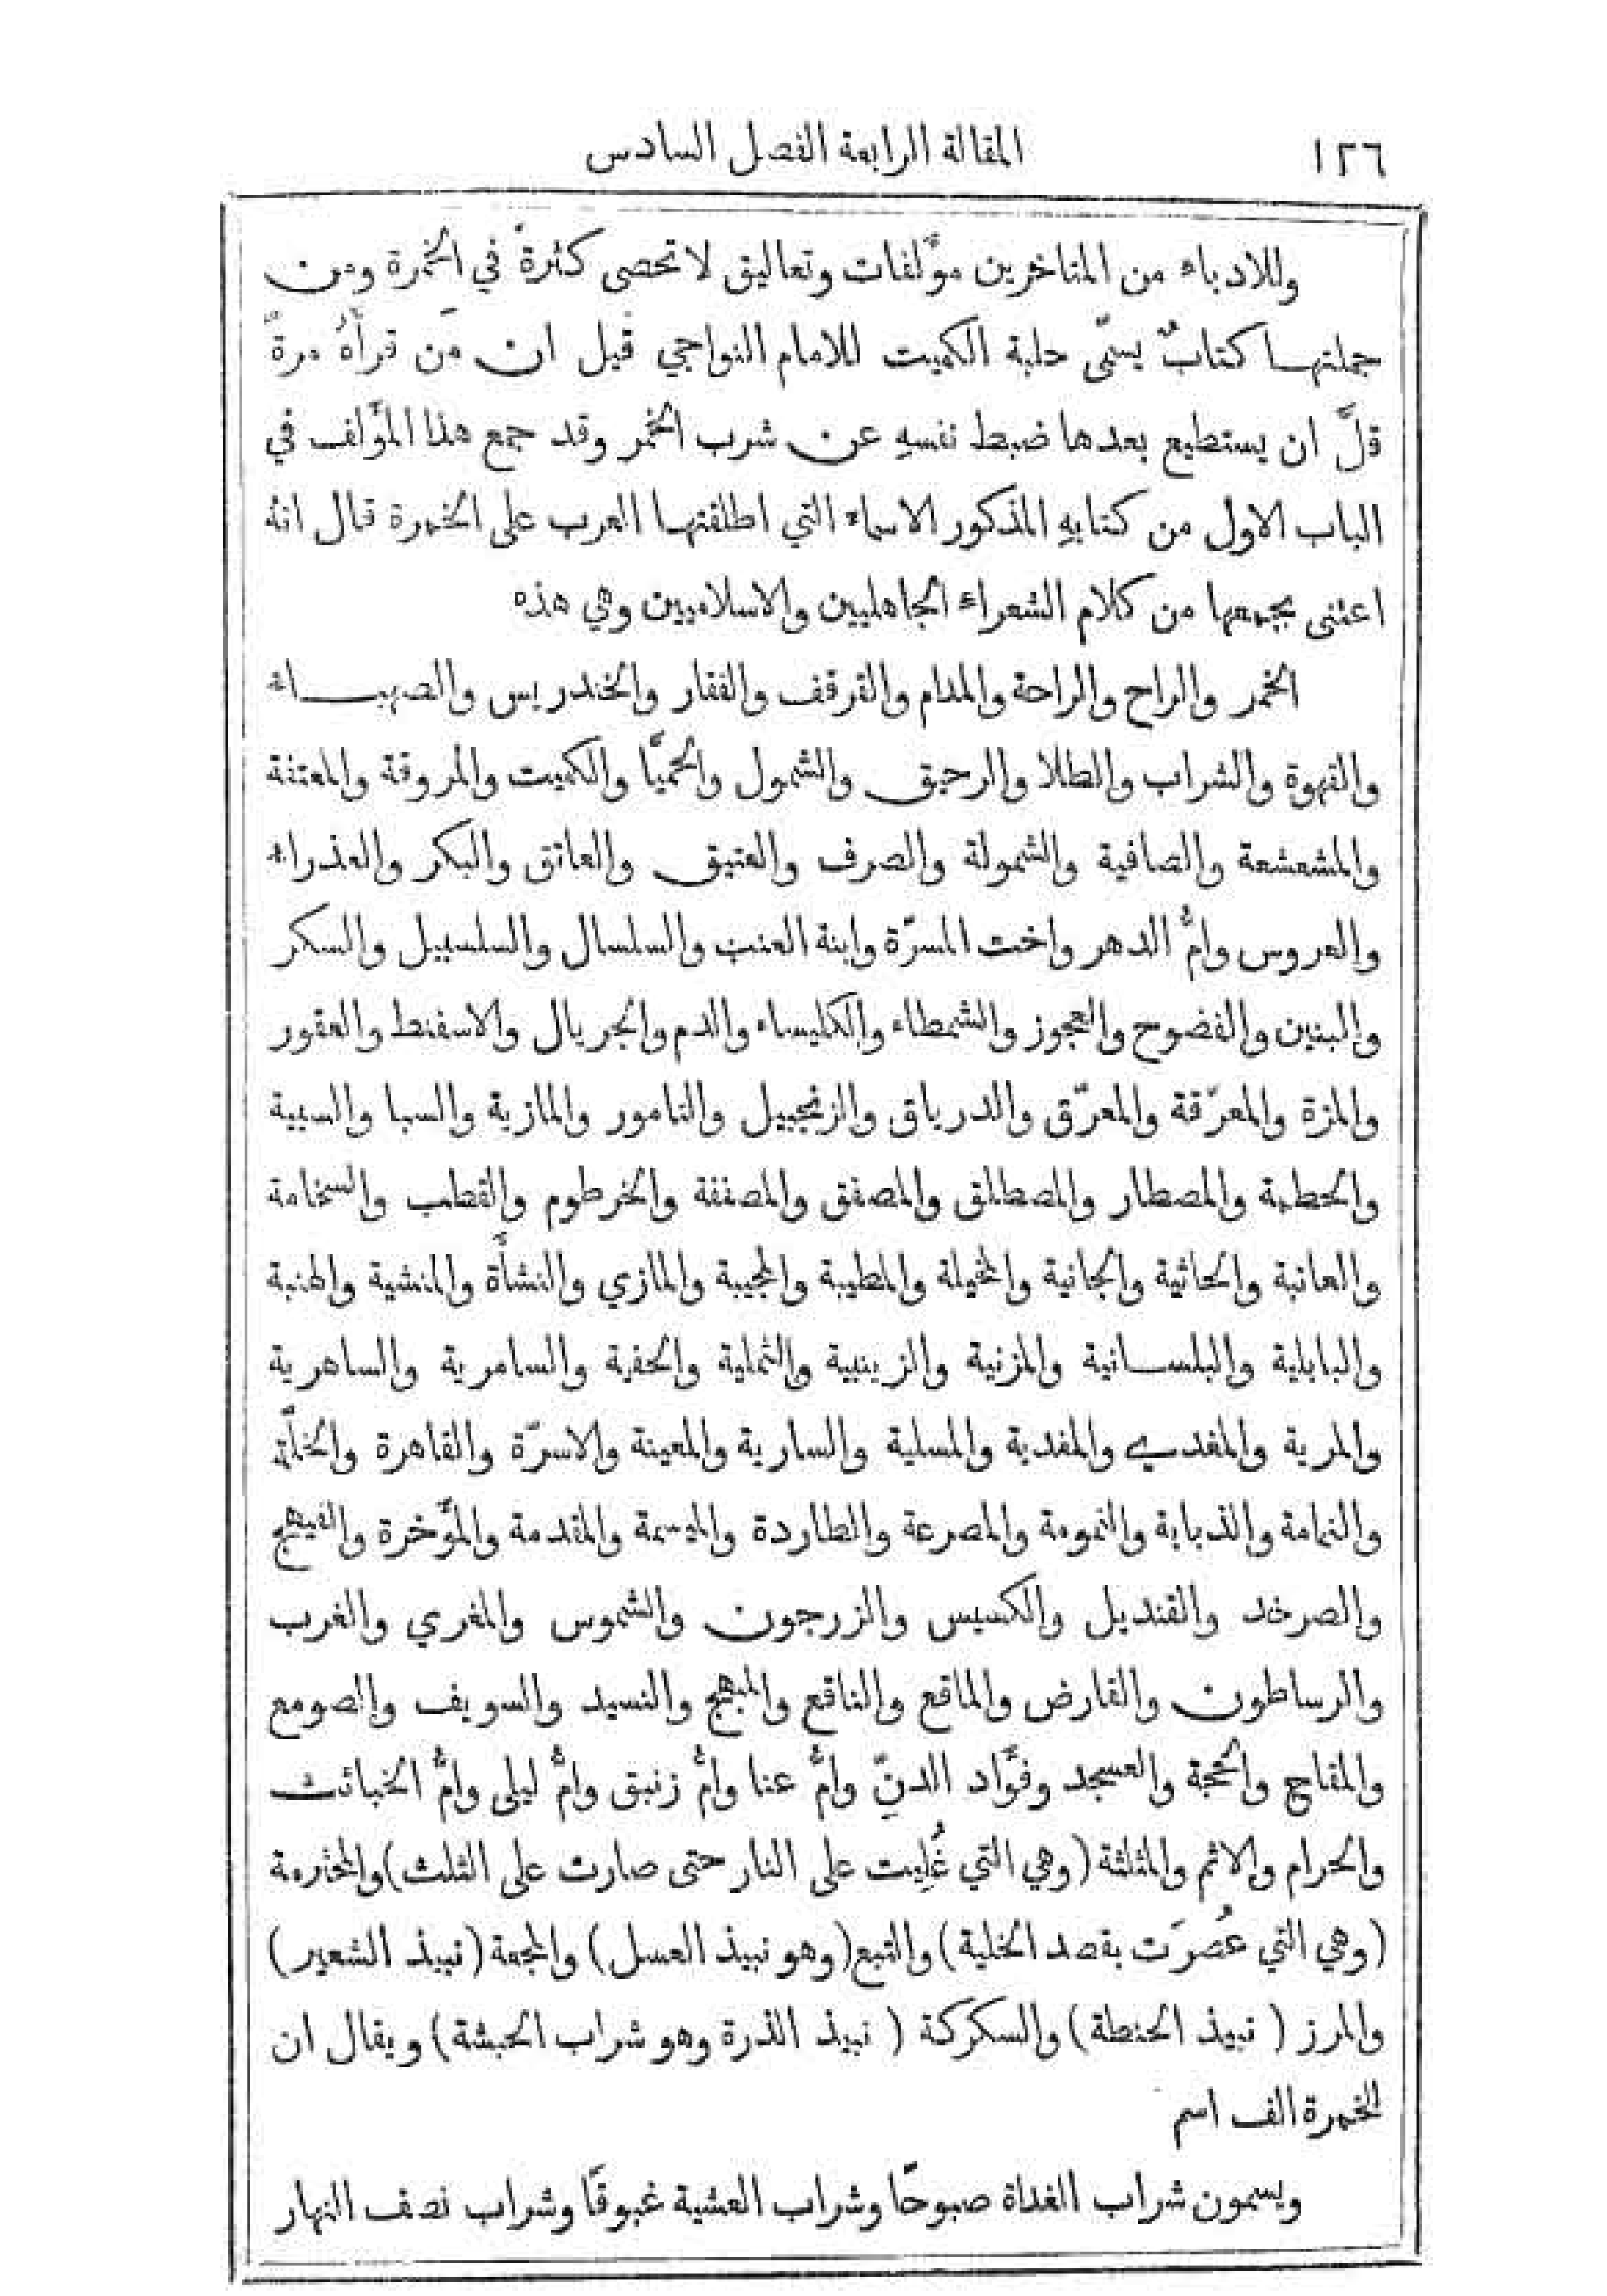 ١٢٦ المقالة الرابعة الفصل السادس
وللادباء من المتاخرين مؤَلفات وتعاليق لا تحصى كثرةً في الخمرة ومن
جملتها كتابٌ يسمّى حلبة الكميت للامام النواجي قيل ان مَن قرأَهُ مرةً
قلَّ ان يستطيع بعدها ضبط نفسهِ عن شرب الخمر وقد جمع هذا المؤَلف في
الباب الاول من كتابهِ المذكور الاسماء التي اطلقتها العرب على الخمرة قال انهُ
اعتنى بجمعها من كلام الشعراء الجاهليين والاسلاميين وهي هذه
الخمر والراح والراحة والمدام والقرقف والعقار والخندريس والصهباء
والقهوة والشراب والطلا والرحيق والشمول والحميَّا والكميت والمروقة والمعتقة
والمشعشعة والصافية والشمولة والصرف والعتيق والعاتق والبكر والعذراء
والعروس وامُّ الدهر واخت المسرّة وابنة العنب والسلسال والسلسبيل والسكر
والبنين والفضوح والعجوز والشمطاء والكليساء والدم والجريال والاسفنط والعقور
والمزة والمعرّقة والمعرّق والدرياق والزنجبيل والنامور والمازية والسبا والسبية
والحطية والمصطار والمصطلق والمصفق والمصفقة والخرطوم والقطب والسخامة
والعانية والحاثية والجانية والمخيلة والمطيبة والمجيبة والمازي والنشأَة والمنشية والهنية
والبابلية والبلسانية والمزنية والزينبية والثملية والحفية والسامرية والساهرية
والمرية والمغدي والمفدية والمسلية والسارية والمعينة والاسرّة والقاهرة والخلَّة
والنمامة والذبابة والنمومة والمصرعة والطاردة والمقدمة والمؤَخرة والفيهج
والصرخد والقنديل والكسيس والزرجون والشموس والمغري والغرب
والرساطون والقارض والماقع والناقع والمبهج والنسيد والسويف والصومع
والمفاج والحجة والعسجد وفؤَاد الدنّ وامُّ عنا وامُّ زنبق وامُّ ليلى وامُّ الخبائث
والحرام والاثم والمثلثة (وهي التي غُلِيت على النار حتى صارت على الثلث) والمخثرمة
(وهي التي عُصرَت بقصد الخلية) والتبع (وهو نبيذ العسل) والجعة (نبيذ الشعير)
والمرز ( نبيذ الحنطة) والسكركة ( نبيذ الذرة وهو شراب الحبشة) ويقال ان
للخمرة الف اسم
ويسمون شراب الغداة صبوحًا وشراب العشية غبوقًا وشراب نصف النهار